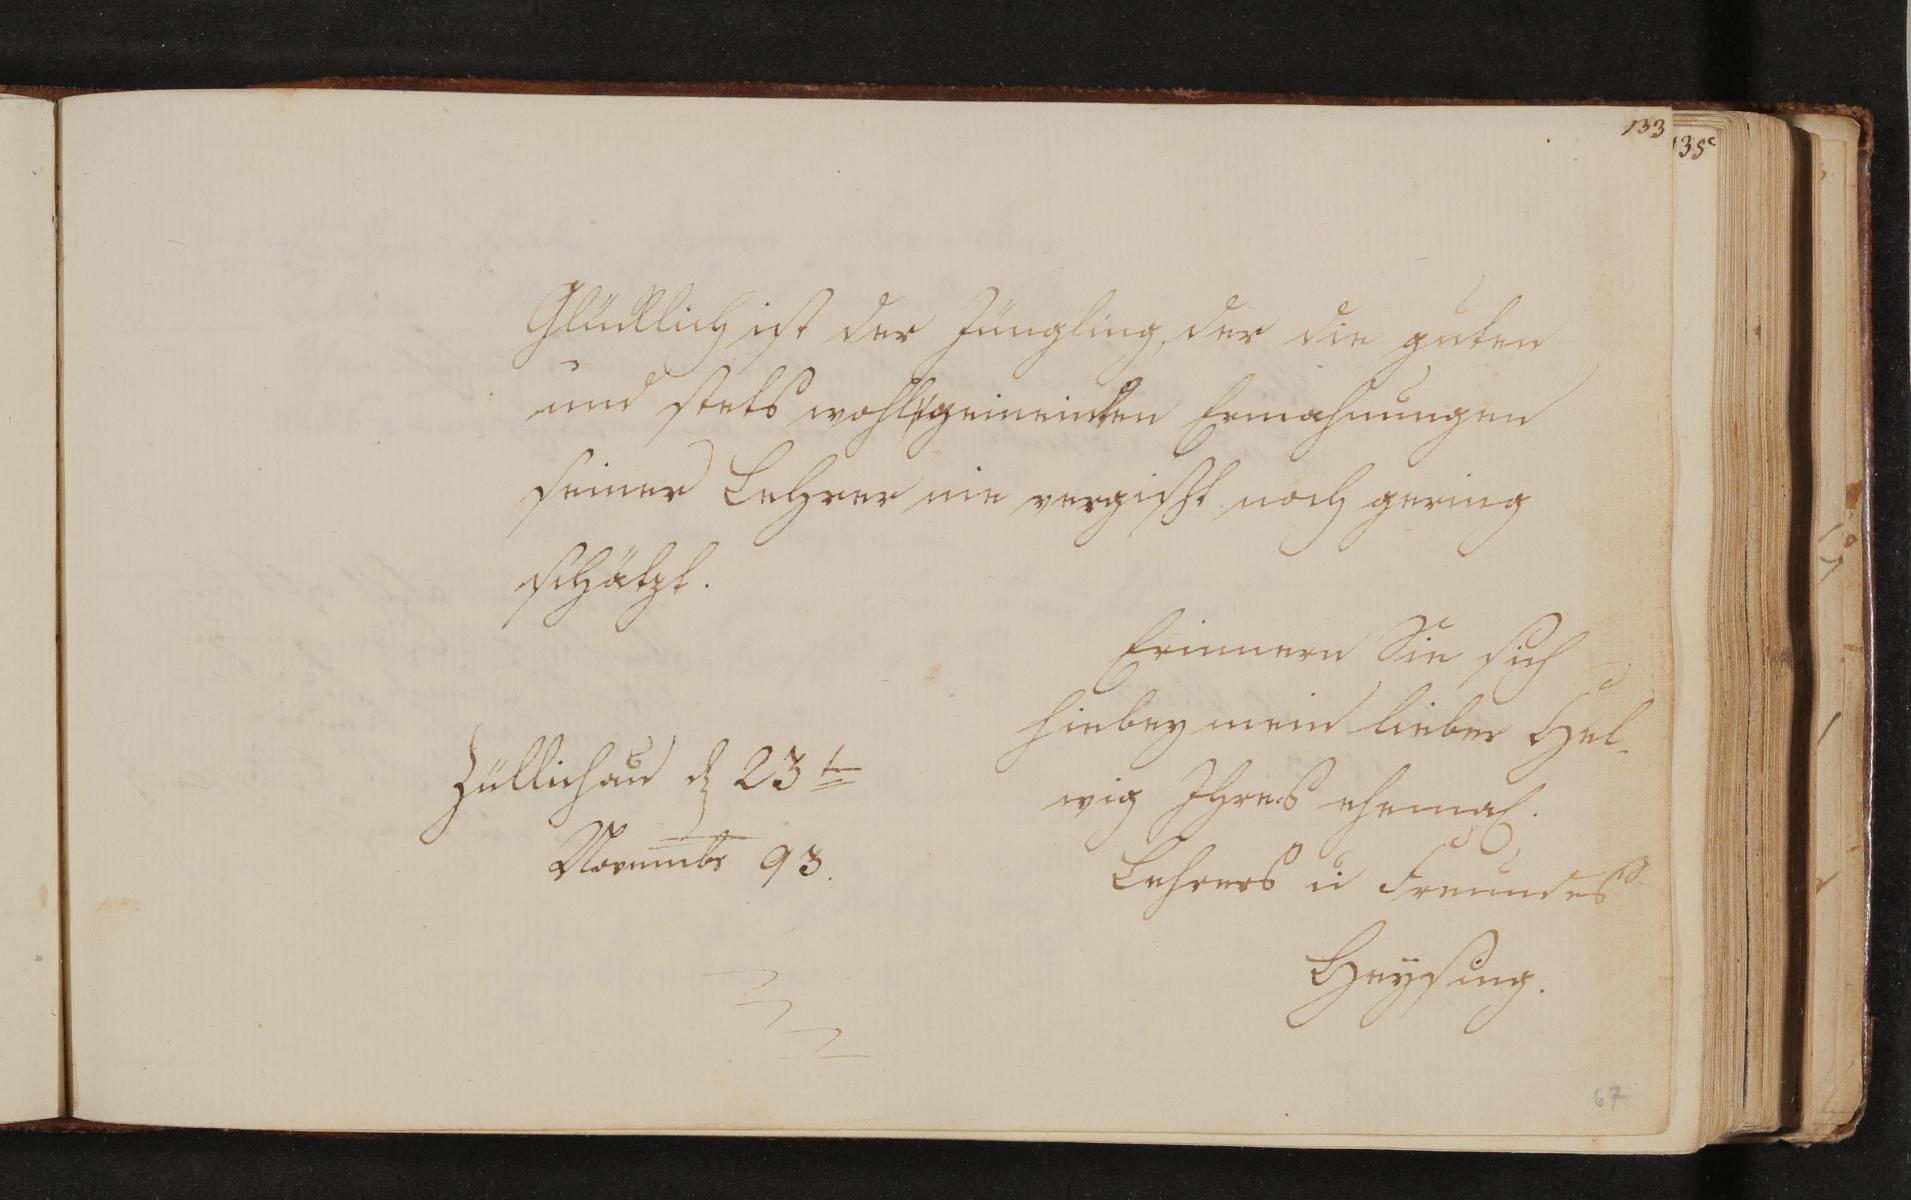 133
135c
Glücklich ist der Jüngling, der die guten
und stets wohlgemeinten Ermahnungen
seiner Lehrer nie vergißt noch gering
schätzt.
Erinnern Sie sich
hiebey mein lieber Hel-
wig Ihres ehemal.
Lehrers u Freundes
Heysing.
Züllichau d 23t
Novembr 93.
67